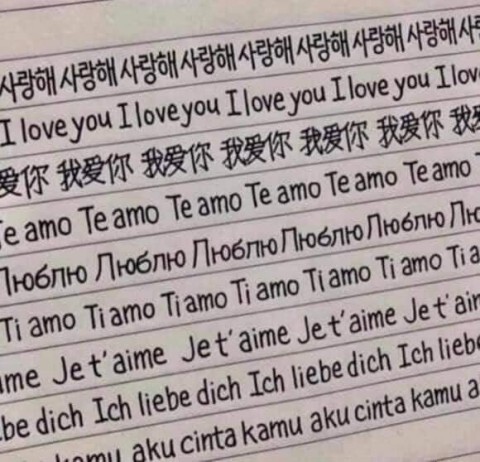 사랑해 사랑해 사랑해 사랑해 사랑해 사랑해 사랑해 사랑해
I love you I love you I love you I love you I love
爱你 我爱你 我爱你 我爱你 我爱你 我爱你
Te amo Te amo Te amo Te amo Te amo Te amo
Люблю Люблю Люблю Люблю Люблю
Ti amo Ti amo Ti amo Ti amo Ti amo Ti amo
Je t'aime Je t'aime Je t'aime Je t'aim
dich Ich liebe dich Ich liebe dich Ich liebe
kamu aku cinta kamu aku cinta kamu aku